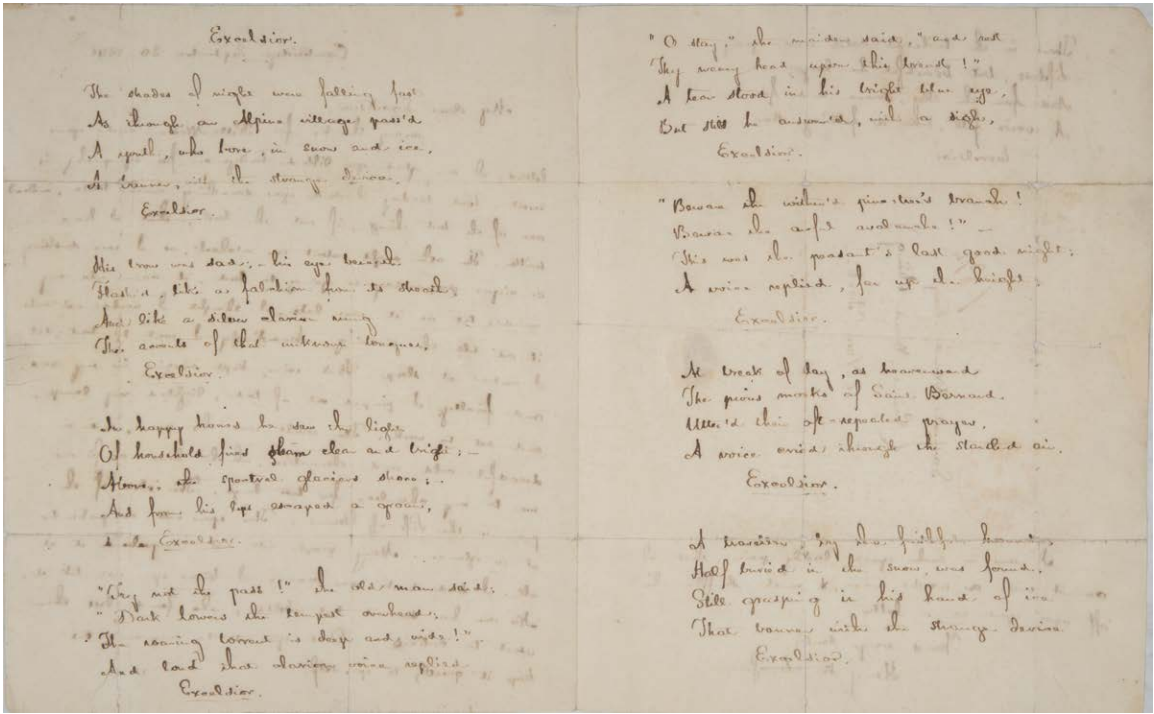 Excelsior.
The shades of night were falling fast
As through an Alpine village pass'd
A youth, who bore, in snow and ice,
A banner, with the strange device.
Excelsior.
His brow was sad; – his eye beneath
Flash'd, like a falchion from its sheath;
And like a silver clarion rung
The accents of that unknown tongue.
Excelsior.
In happy homes he saw the light
Of household fires gleam clear and bright; –
Above, the spectral glaciers shone; –
And from his lips escaped a groan,
Excelsior.
"Try not the pass!" the old man said;
"Dark lowers the tempest overhead;
"The roaring torrent is deep and wide!"
And loud that clarion voice replied
Excelsior.
"O stay," the maiden said, "and rest
Thy weary head upon this breast!"
A tear stood in his bright blue eye,
But still he answer'd, with a sigh,
Excelsior.
"Beware the wither'd pine-tree's branch!
Beware the awful avalanche!" –
This was the peasant's last good night;
A voice replied, far up the height;
Excelsior.
At break of day, as heavenward
The pious monks of Saint Bernard
Utter'd their oft-repeated prayer,
A voice cried through the startled air.
Excelsior.
A traveller, by the faithful hound,
Half buried in the snow was found,
Still grasping in his hand of ice
That banner with the strange device
Excelsior.